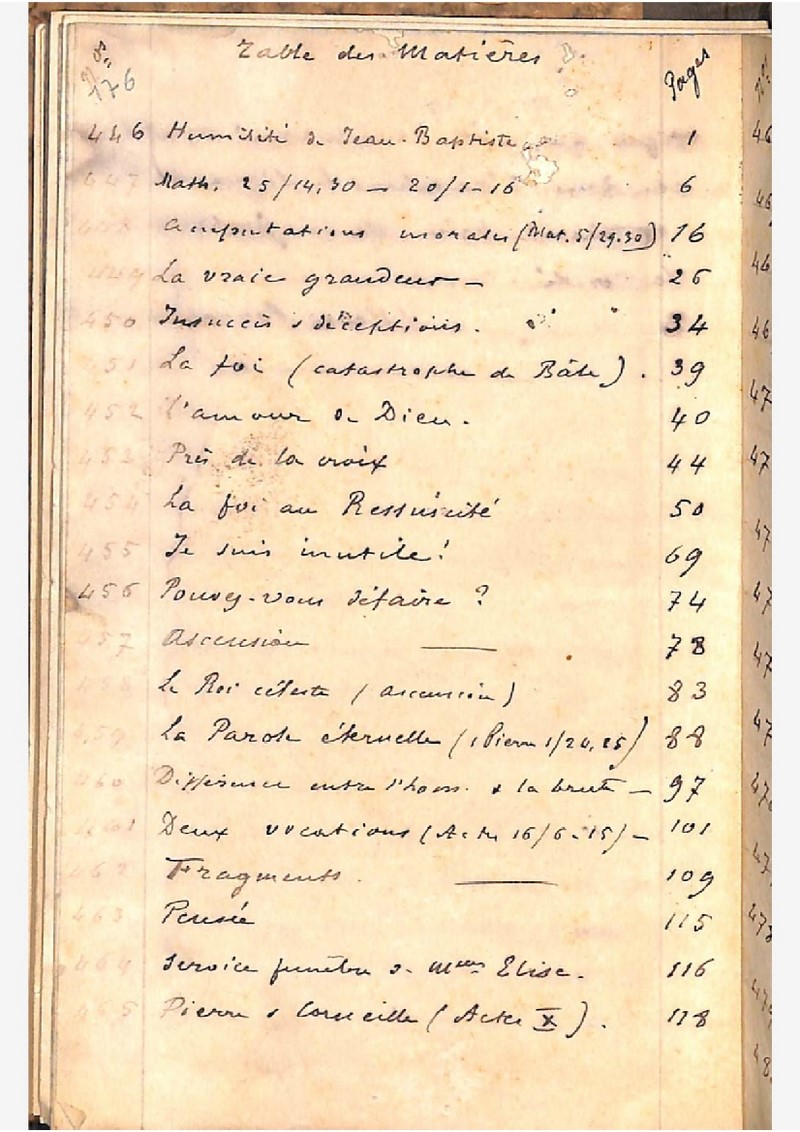 Table des Matières
Nos
176
Pages
446 Humilité de Jean-Baptiste 1
447 Math. 25/14,30 — 20/1-16 6
448 Amputations morales (Mat. 5/29.30) 16
449 La vraie grandeur — 26
450 Insuccès & déceptions. 34
451 La foi (catastrophe de Bâle). 39
452 L'amour de Dieu. 40
453 Près de la croix 44
454 La foi au Ressuscité 50
455 Je suis inutile! 69
456 Pouvez-vous défaire? 74
457 Ascension — 78
458 Le Roi céleste (ascension) 83
459 La Parole éternelle (1 Pierre 1/24,25) 88
460 Différence entre l'hom. & la brute — 97
461 Deux vocations (Actes 16/6-15) — 101
462 Fragments. — 109
463 Pensée 115
464 Service funèbre de Elise. 116
465 Pierre & Corneille (Actes X). 118